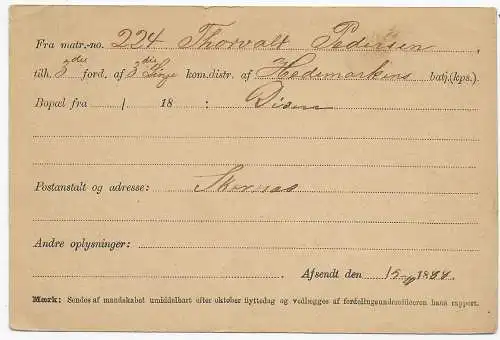 Fra matr.-no. 224 Thorvalt Pedersen
tilh. 3die ford. af 3die Linje kom.distr. af Hedemarkens batj.(kps.).
Bopæl fra / 18 :
Postanstalt og adresse:
Andre oplysninger:
Afsendt den 15 1888.
Mærk: Sendes af mandskabet umiddelbart efter oktober flyttedag og vedlægges af fordelingsunderofficeren hans rapport.